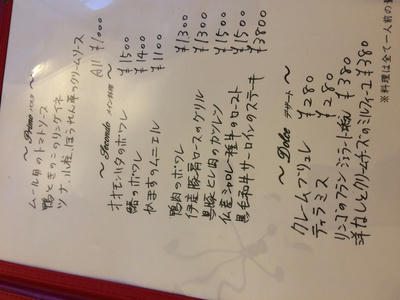 ～Primo パスタ～
ムール貝のトマトソース
鴨ときのこのリングイネ
ツナ、小柱、ほうれん草のクリームソース
All ¥1000
～Secondo メイン料理～
オオモンハタのポワレ ¥1500
鮨のポワレ ¥1400
かますのムニエル ¥1100
鴨肉のポワレ ¥1300
伊達豚肩ロースのグリル ¥1300
黒豚ヒレ肉のカツレツ ¥1500
仏産シャロレー種牛のロースト ¥1500
黒毛和牛サーロインのステーキ ¥3800
～Dolce デザート～
クレームブリュレ ¥280
ティラミス ¥280
リンゴのフラン ジェラート添え ¥380
洋なしとクリームチーズのミルフィーユ ¥380
※料理は全て一人前の